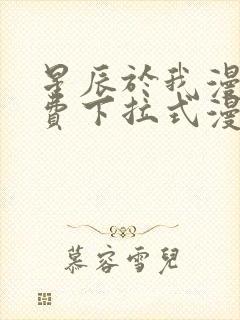 星辰於我漫
費下拉式漫
慕容雪兒